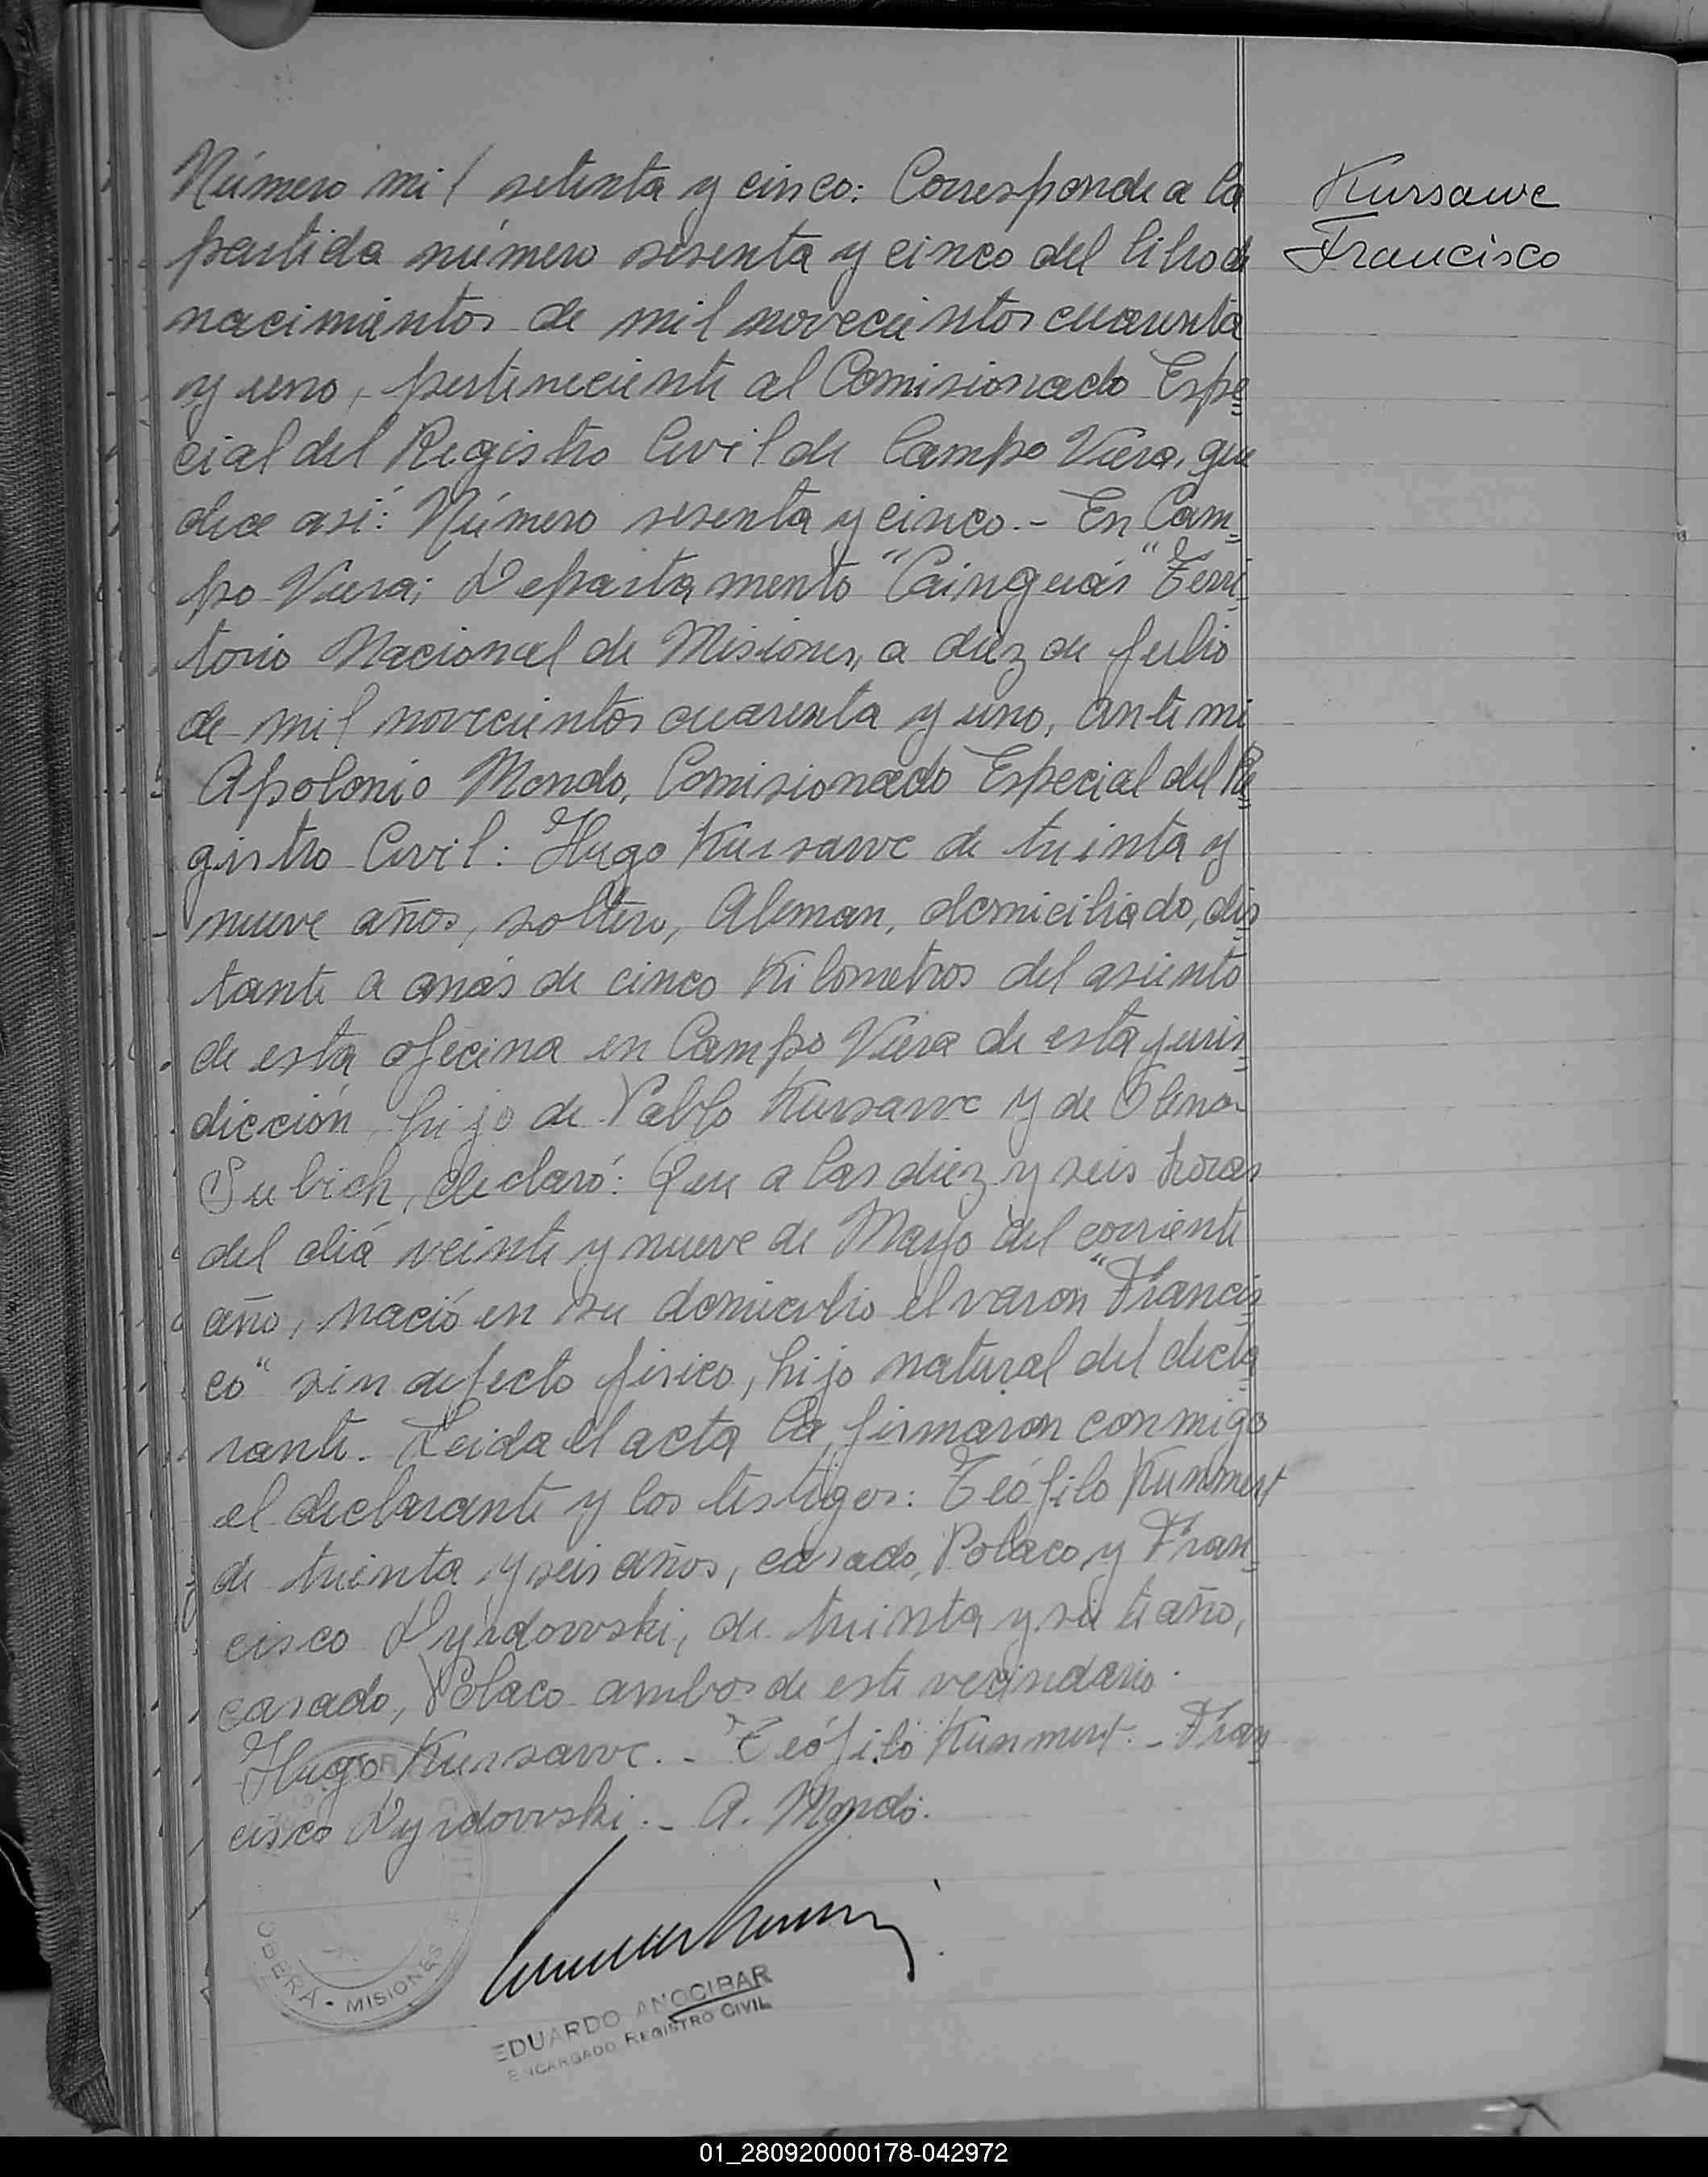 Número mil setenta y cinco: Corresponde a la
partida número sesenta y cinco del libro de
nacimientos de mil novecientos cuarenta
y uno, perteneciente al Comisionado Espe
cial del Registro Civil de Campo Viera, que
dice asi: Número sesenta y cinco.- En Cam
po Viera; Departamento "Cainguás" Terri
torio Nacional de Misiones, a diez de Julio
de mil novecientos cuarenta y uno, ante mi
Apolonio Mondo, Comisionado Especial del Re
gistro Civil: Hugo Kursawe de treinta y
nueve años, soltero, Aleman, domiciliado, dis
tante a más de cinco Kilometros del asiento
de esta oficina en Campo Viera de esta juris
dicción, hijo de Pablo Kursawe y de
Subich, declaró: Que a las diez y seis horas
del diá veinte y nueve de Mayo del corriente
año, nació en su domicilio el varon "Francis
co" sin defecto físico, hijo natural del decla
rante. Leida el acta la firmaron conmigo
el declarante y los testigos: Teófilo Kummert
de treinta y seis años, casado, Polaco y Fran
cisco Dyrdowski, de treinta y siete año,
casado, Polaco ambos de este vecindario.
Hugo Kursawe.- Teófilo Kummert.- Fran
cisco Dyrdowski.- A. Mondo.
Kursawe
Francisco
OBERÁ - MISIONES
EDUARDO ANOCIBAR
ENCARGADO REGISTRO CIVIL
01_280920000178-042972